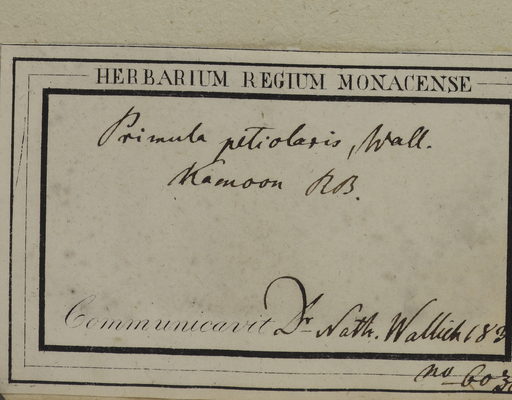 HERBARIUM REGIUM MONACENSE
Primula petiolaris, Wall.
Kamoon RB.
Communicavit Dr Nath. Wallich 183
no 603